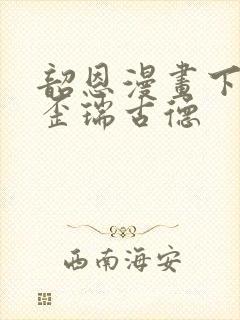 韶恩漫畫下
歪瑞古德
西南海安